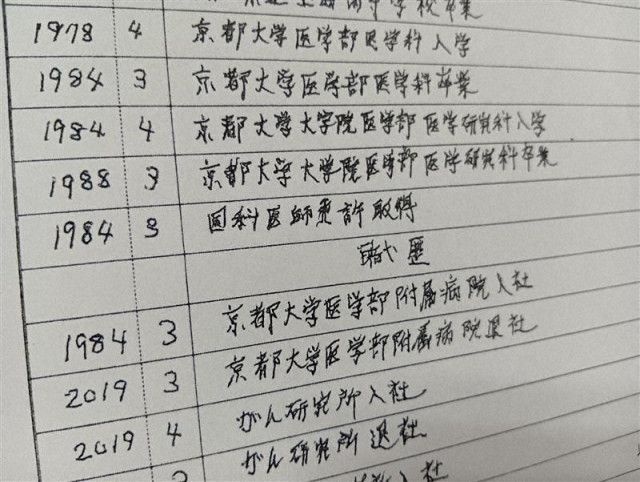 学校卒業
1978 4 京都大学医学部医学科入学
1984 3 京都大学医学部医学科卒業
1984 4 京都大学大学院医学部医学研究科入学
1988 3 京都大学大学院医学部医学研究科卒業
1984 3 医師免許取得
職歴
1984 3 京都大学医学部附属病院入社
2019 3 京都大学医学部附属病院退社
2019 4 がん研究所入社
がん研究所退社
入社